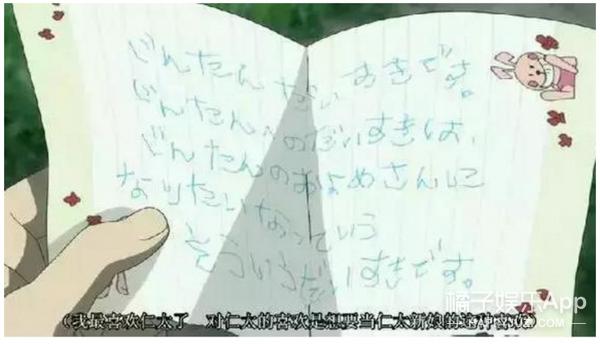 じんたんだいすきです。
じんたんへのだいすきは、
じんたんのおよめさんに
なりたいなっていう
そういうだいすきです。
(我最喜欢仁太了 对仁太的喜欢是想要当仁太新娘的这种喜欢)
橘子娱乐App